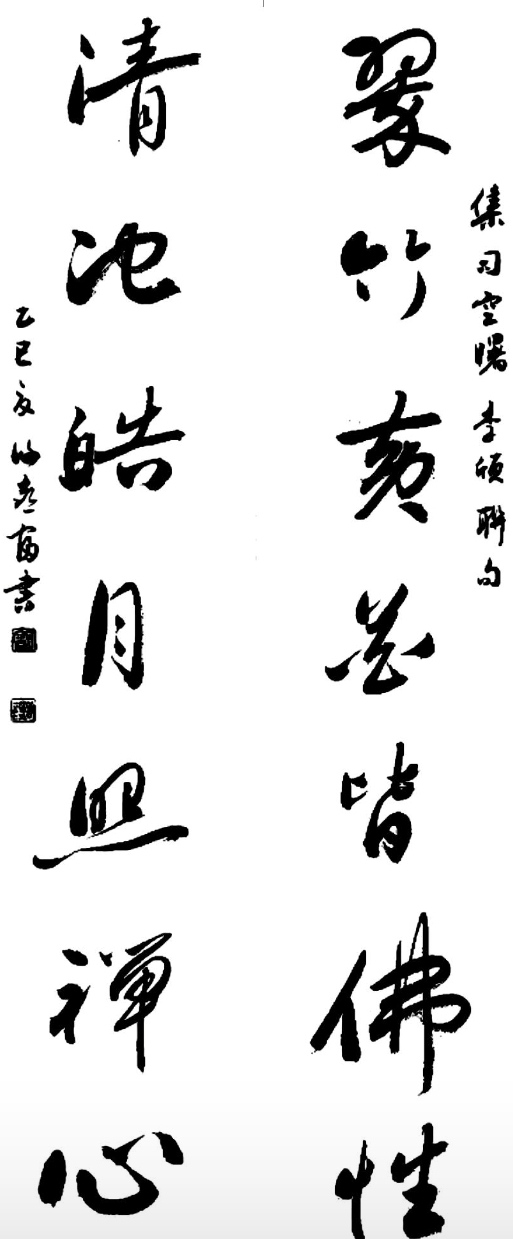 集司空曙李颀聯句
翠竹黄花皆佛性
清池皓月照禪心
乙巳夏 書